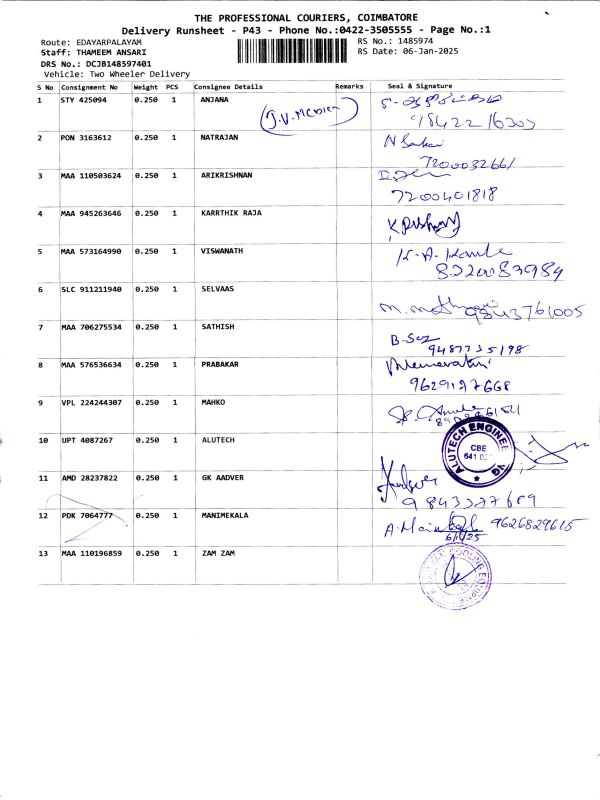 THE PROFESSIONAL COURIERS, COIMBATORE
Delivery Runsheet - P43 - Phone No.:0422-3505555 - Page No.:1
Route: EDAYARPALAYAM
RS No.: 1485974
Staff: THAMEEM ANSARI
RS Date: 06-Jan-2025
DRS No.: DCJB148597401
Vehicle: Two Wheeler Delivery
S No Consignment No Weight PCS Consignee Details Remarks Seal & Signature
1 STY 425094 0.250 1 ANJANA
(J.V. MEDIA)
2 PON 3163612 0.250 1 NATRAJAN
7200032661
3 MAA 110503624 0.250 1 ARIKRISHNAN
7200401818
4 MAA 945263646 0.250 1 KARRTHIK RAJA
5 MAA 573164990 0.250 1 VISWANATH
8220083984
6 SLC 911211940 0.250 1 SELVAAS
9843761005
7 MAA 706275534 0.250 1 SATHISH
9487735198
8 MAA 576536634 0.250 1 PRABAKAR
9629127668
9 VPL 224244307 0.250 1 MAHKO
10 UPT 4087267 0.250 1 ALUTECH
ALUTECH ENGINEE
CBE
641
11 AMD 28237822 0.250 1 GK AADVER
9843327659
12 PDK 7064777 0.250 1 MANIMEKALA
9626829615
6/1/25
13 MAA 110196859 0.250 1 ZAM ZAM
COOLING EQUIPME